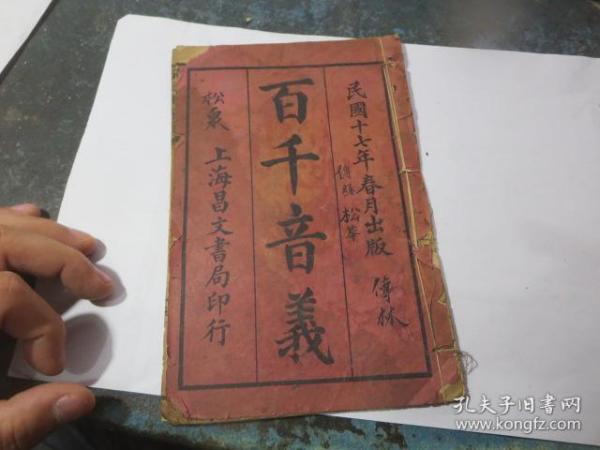 民國十七年春月出版
傅林
百千音義
松泉
上海昌文書局印行
孔夫子旧书网
www.kongfz.com